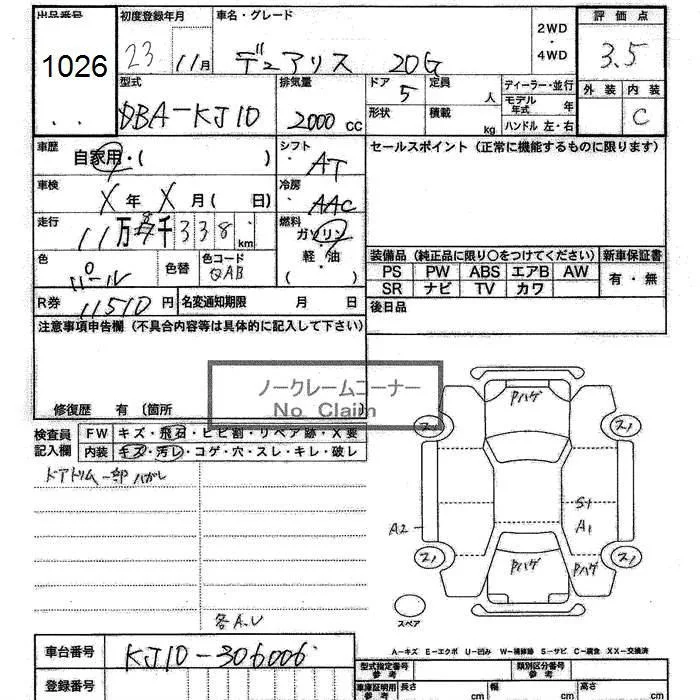 出品番号 初度登録年月 車名・グレード 2WD ・ 4WD 評価点
1026 23 11月 デュアリス 20G 3.5
型式 排気量 ドア 定員 人 ディーラー・並行 外装 内装
DBA-KJ10 2000 cc 5 形状 積載 kg モデル年式 年 C
ハンドル 左・右
車歴 自家用・( ) シフト AT セールスポイント(正常に機能するものに限ります)
車検 X 年 X 月( 日) 冷房 AAC
走行 11万8千338km 燃料 ガソリン・軽・油 ( )
色 パール 色替 色コード QAB
装備品(純正品に限り〇をつけてください) 新車保証書
PS PW ABS エアB AW 有・無
SR ナビ TV カワ
R券 11510円 名変通知期限 月 日 後日品
注意事項申告欄(不具合内容等は具体的に記入して下さい)
ノークレームコーナー
No Claim
修復歴 有(箇所 )
検査員 FW キズ・飛石・ヒビ割・リペア跡・X要
記入欄 内装 キズ・汚レ・コゲ・穴・スレ・キレ・破レ
ドアトリム一部ハガレ
各A.U
Pハゲ
スリ スリ
S1
A2 A1
スリ Pハゲ Pハゲ スリ
スペア
A-キズ E-エクボ U-凹み W-補修跡 S-サビ C-腐食 XX-交換済
車台番号 KJ10-306006
登録番号
型式指定番号 参考 類別区分番号 参考
車庫証明用 参考 長さ cm 幅 cm 高さ cm